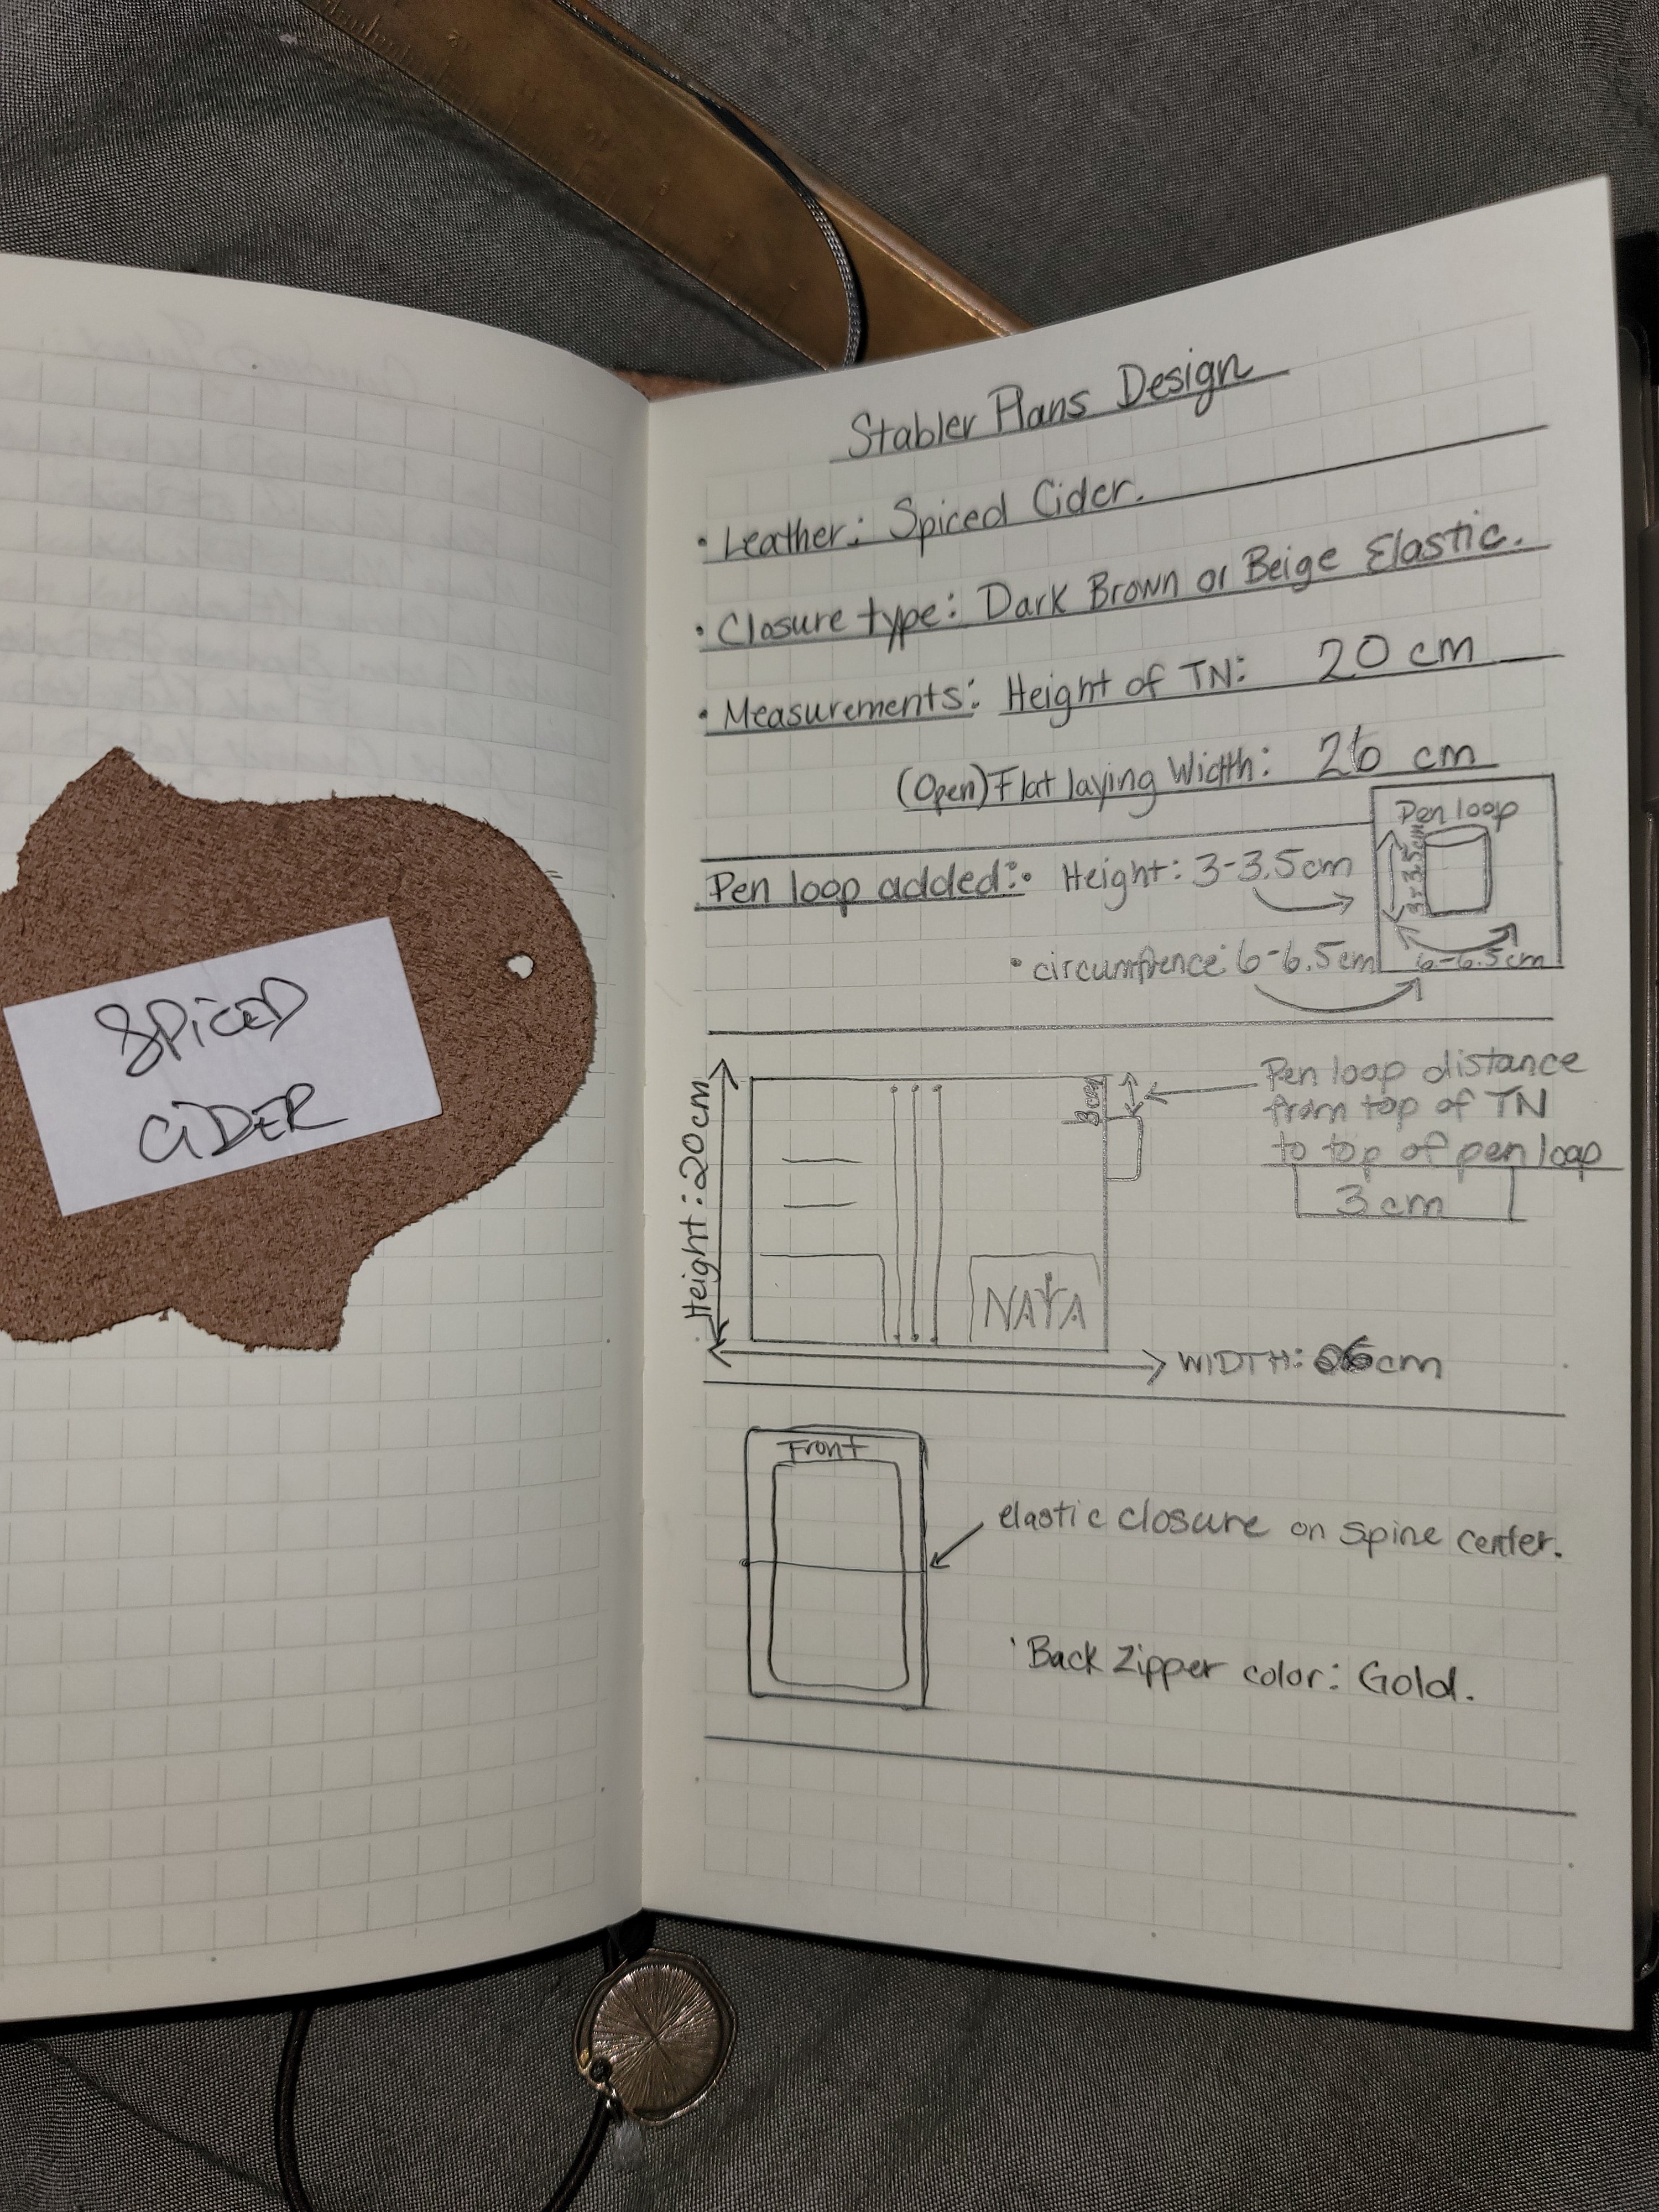 SPICED
CIDER
Stabler Plans Design
• Leather: Spiced Cider.
• Closure type: Dark Brown or Beige Elastic.
• Measurements: Height of TN: 20 cm
(Open) Flat laying Width: 26 cm
Pen loop added: • Height: 3-3.5cm
• circumfrence: 6-6.5cm
Pen loop
3-3.5cm
6-6.5cm
Height: 20cm
3cm
Pen loop distance
from top of TN
to top of pen loop
3 cm
NAYA
WIDTH: cm
Front
elastic closure on spine center.
• Back Zipper color: Gold.